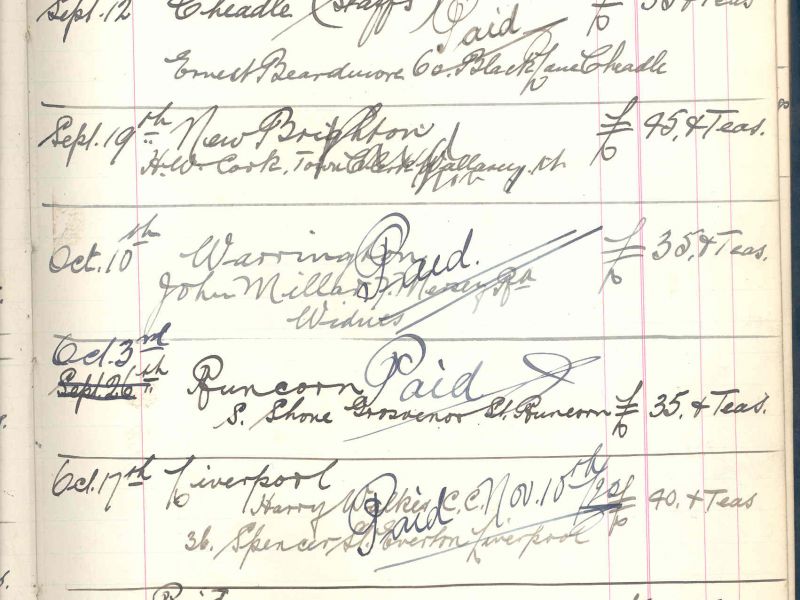 Sept. 12 Cheadle (Staffs) Paid £ 35 + Teas
Ernest Beardmore 60. Black Lane Cheadle
Sept. 19th New Brighton £ 45. + Teas.
H. W. Cook. Town Clerk Wallasey.
Oct. 10th Warrington Paid. £ 35. + Teas.
John Millar 7. Mersey Rd
Widnes
Oct. 3rd
Sept. 26th Runcorn Paid
S. Shone Grosvenor St. Runcorn £ 35. + Teas.
Oct. 17th Liverpool Nov. 10th
Harry Walkis C.C. Paid £ 40. + Teas
36. Spencer St. Everton Liverpool